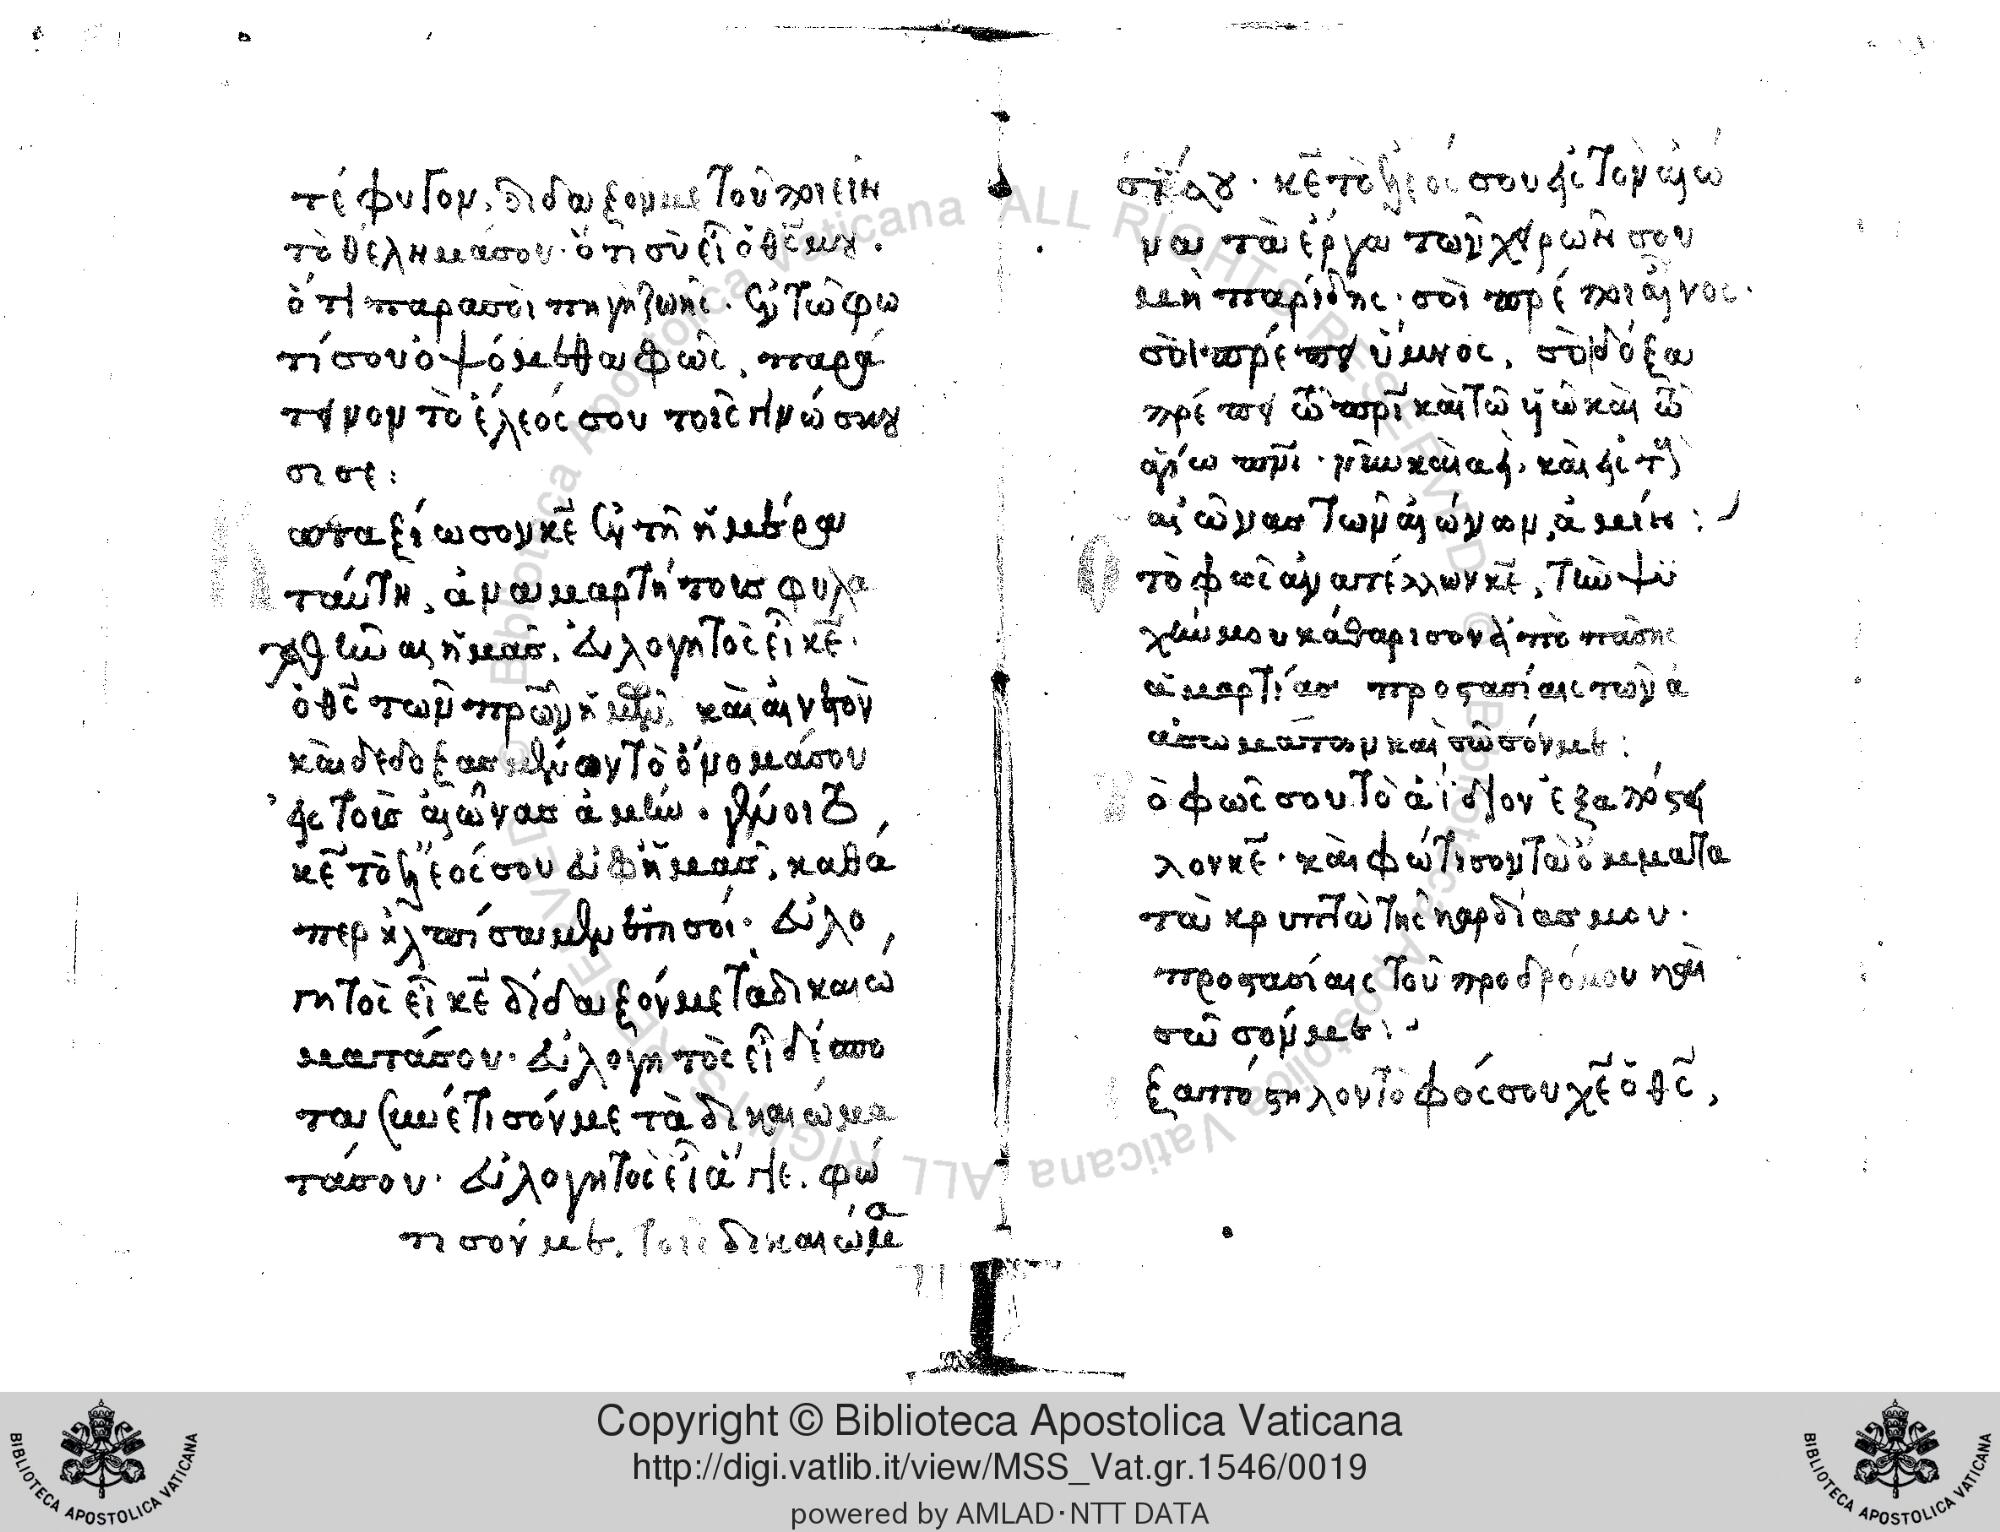 τέφυγον. δίδαξόνμε τοῦ ποιεῖν
τὸ θέλημάσου. ὅτι σὺ εἶ ὁ θς μου.
ὅτι παρασοὶ πηγὴ ζωῆς. ἐν τῶ φω
τίσου ὀψόμεθα φῶς, παρά
τεινον τὸ ἔλεός σου τοῖς γινώσκου
σι σε:
αταξίωσον κε ἐν τῆ ἡμέρα
ταύτη, ἀναμαρτήτους φυλα
χθῆναι ἡμᾶς. εὐλογητὸς εἶ κε.
ὁ θς τῶν πρων ἡμῶν, καὶ αἰνετὸν
καὶ δεδοξασμένον τὸ ὄνομάσου
εἰς τοὺς αἰῶνας ἀμήν. γένοιτο
κε τὸ ἔλεός σου ἐφ ἡμᾶς, καθά
περ ἠλπίσαμεν ἐπὶ σοί. εὐλο
γητὸς εἶ κε δίδαξόν με τὰ δικαιώ
ματάσου. εὐλογητὸς εἶ δέσπο
τα συνέτισόν με τὰ δικαιώμα
τάσου. εὐλογητὸς εἶ ἅγιε. φώ
τισόν με. τοῖς δικαιώμα
σίσου. κε τὸ ἔλεός σου εἰς τὸν αἰῶ
να τὰ ἔργα τῶν χειρῶν σου
μὴ παρίδης. σοὶ πρέποι αἶνος.
σοὶ πρέπει ὕμνος, σοὶ δόξα
πρέπει τῶ πρι καὶ τῶ υἱῶ καὶ τῶ
ἁγίω πνι. νῦν καὶ ἀεὶ, καὶ εἰς τοὺς
αἰῶνας τῶν αἰώνων, ἀμήν:
τὸ φῶς ἀνατέλλων κε, τὴν ψυ
χήν μου καθάρισον ἀπὸ πάσης
ἁμαρτίας προστασίαις τῶν ἀ
ἀσωμάτων καὶ σῶσόν με:
ὸ φῶς σου τὸ ἀΐδιον ἐξαπόστει
λον κε. καὶ φώτισον τὰ ὄμματα
τὰ κρυπτὰ τῆς καρδίας μου.
προστασίαις τοῦ προδρόμου καὶ
σῶσόν με:
ξαπόστηλον τὸ φός σου χε ὁ θς,
Copyright © Biblioteca Apostolica Vaticana
http://digi.vatlib.it/view/MSS_Vat.gr.1546/0019
powered by AMLAD·NTT DATA
BIBLIOTECA APOSTOLICA VATICANA
BIBLIOTECA APOSTOLICA VATICANA